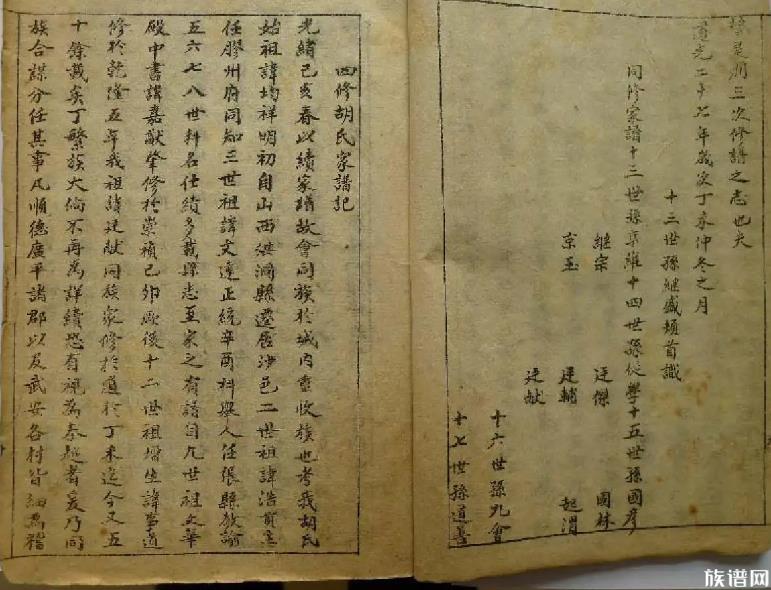 三次修譜之志也夫
道光二十七年歲次丁未仲冬之月
十三世孫継盛頓首識
同修家譜十三世孫 維十四世孫従學十五世孫國彥
継宗 廷傑 國林
京玉 廷輔 起渭
廷献
十六世孫九會
十七世孫道書
四修胡氏家譜記
光緒己亥春以續家譜故會同族於城内重收族也考我胡氏
始祖諱均祥明初自山西洪洞縣遷居沙邑二世祖諱浩貢生
任膠州府同知三世祖諱文達正統辛酉科舉人任張縣教諭
五六七八世科名仕績多載縣志至家之有譜自九世祖文華
殿中書諱嘉猷肇修於崇禎己卯厥後十二世祖增生諱 道
修於乾隆五年我祖諱廷献同族衆修於道光丁未迄今又五
十餘載矣丁繁族大倘不再為詳續恐有視為秦越者爰乃同
族合謀分任其事凡順德廣平諸郡以及武安各村皆細為稽
族谱网